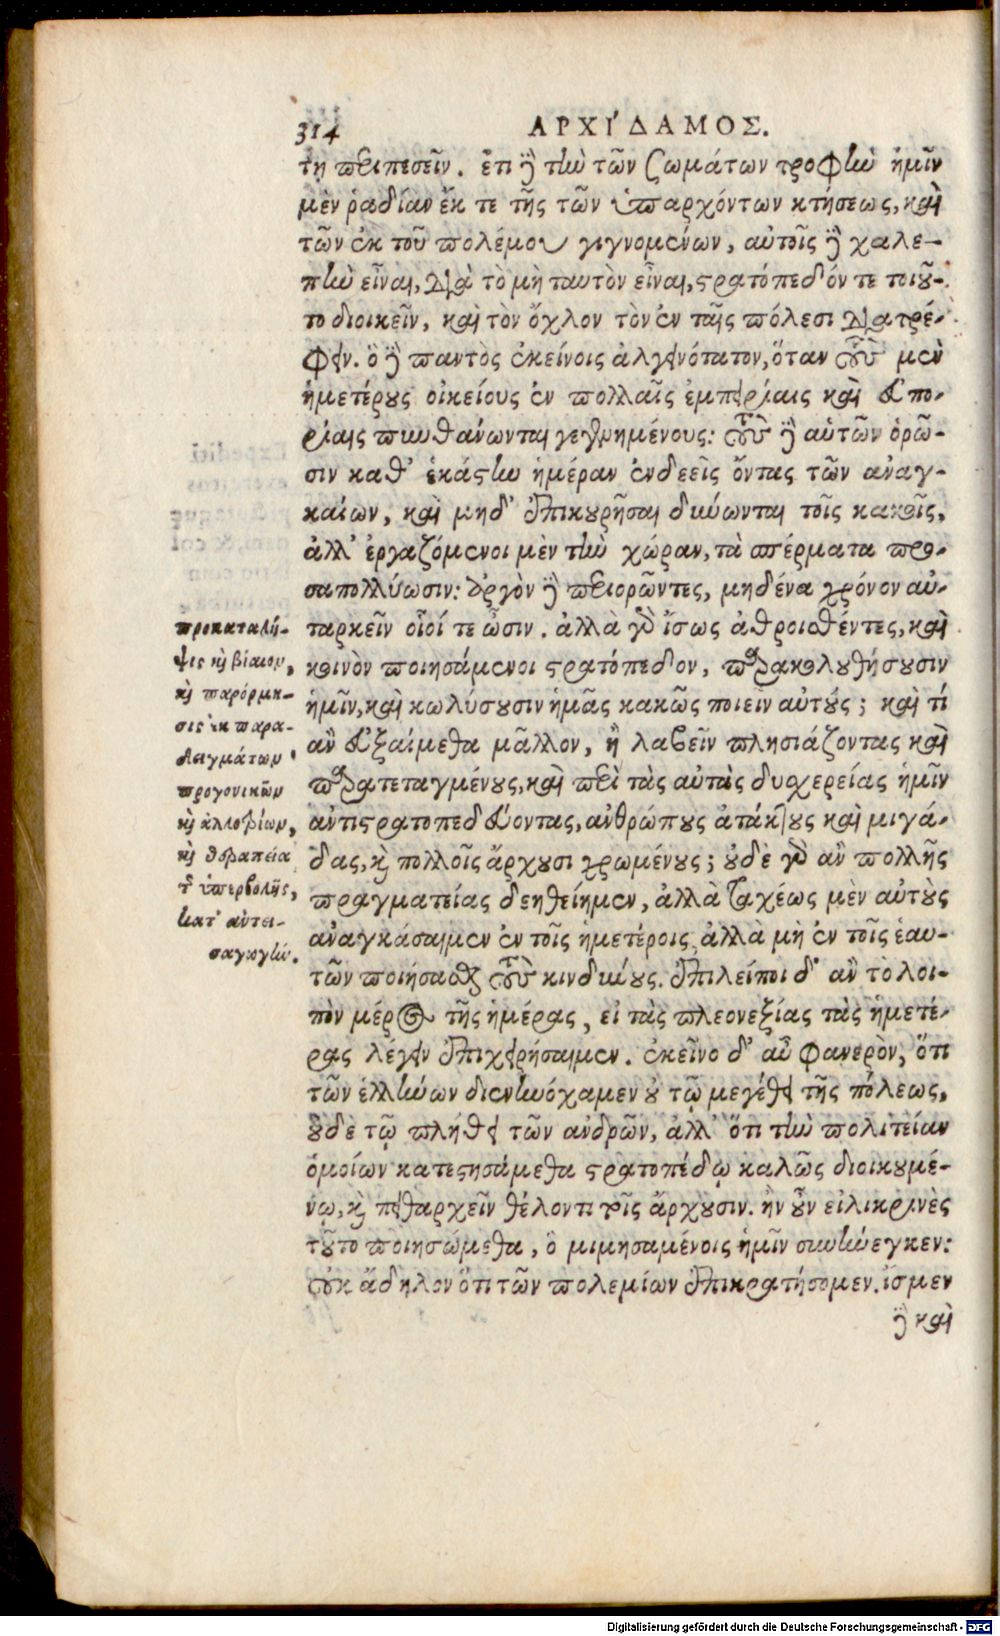 314
ΑΡΧΙΔΑΜΟΣ.
τη περιπεσεῖν. ἔτι δὲ τὴν τῶν σωμάτων τροφὴν ἡμῖν
μὲν ῥᾳδίαν ἔκ τε τῆς τῶν ὑπαρχόντων κτήσεως, καὶ
τῶν ἐκ τοῦ πολέμου γιγνομένων, αὐτοῖς δὲ χαλε-
πὴν εἶναι, διὰ τὸ μὴ ταυτὸν εἶναι, στρατόπεδόν τε τοιοῦ-
το διοικεῖν, καὶ τὸν ὄχλον τὸν ἐν ταῖς πόλεσι διατρέ-
φειν. ὃ δὲ παντὸς ἐκείνοις ἀλγεινότατον, ὅταν τοὺς μὲν
ἡμετέρους οἰκείους ἐν πολλαῖς ἐμπειρίαις καὶ εὐπο-
ρίαις πυνθάνωνται γεγενημένους: τοὺς δὲ αὑτῶν ὁρῶ-
σιν καθ' ἑκάστην ἡμέραν ἐνδεεῖς ὄντας τῶν ἀναγ-
καίων, καὶ μηδ' ἐπικουρῆσαι δύνωνται τοῖς κακοῖς,
ἀλλ' ἐργαζόμενοι μὲν τὴν χώραν, τὰ σπέρματα προ-
σαπολλύωσιν: ἀργὸν δὲ περιορῶντες, μηδένα χρόνον αὐ-
ταρκεῖν οἷοί τε ὦσιν. ἀλλὰ γὰρ ἴσως ἀθροισθέντες, καὶ
κοινὸν ποιησάμενοι στρατόπεδον, παρακολουθήσουσιν
ἡμῖν, καὶ κωλύσουσιν ἡμᾶς κακῶς ποιεῖν αὐτούς; καὶ τί
ἂν εὐξαίμεθα μᾶλλον, ἢ λαβεῖν πλησιάζοντας καὶ
παρατεταγμένους, καὶ περὶ τὰς αὐτὰς δυσχερείας ἡμῖν
ἀντιστρατοπεδεύοντας, ἀνθρώπους ἀτάκτους καὶ μιγά-
δας, καὶ πολλοῖς ἄρχουσι χρωμένους; οὐδὲ γὰρ ἂν πολλῆς
πραγματείας δεηθείημεν, ἀλλὰ ταχέως μὲν αὐτοὺς
ἀναγκάσαιμεν ἐν τοῖς ἡμετέροις ἀλλὰ μὴ ἐν τοῖς ἑαυ-
τῶν ποιήσασθαι τοὺς κινδύνους. ἐπιλείποι δ' ἂν τὸ λοι-
πὸν μέρος τῆς ἡμέρας, εἰ τὰς πλεονεξίας τὰς ἡμετέ-
ρας λέγειν ἐπιχειρήσαιμεν. ἐκεῖνο δ' αὖ φανερὸν, ὅτι
τῶν ἑλλήνων διενηνόχαμεν οὐ τῷ μεγέθει τῆς πόλεως,
οὐδὲ τῷ πλήθει τῶν ἀνδρῶν, ἀλλ' ὅτι τὴν πολιτείαν
ὁμοίων κατεστησάμεθα στρατοπέδῳ καλῶς διοικουμέ-
νῳ, καὶ πειθαρχεῖν θέλοντι τοῖς ἄρχουσιν. ἢν οὖν εἰλικρινὲς
τοῦτο ποιησώμεθα, ὃ μιμησαμένοις ἡμῖν συνήνεγκεν:
οὐκ ἄδηλον ὅτι τῶν πολεμίων ἐπικρατήσομεν. ἴσμεν
δὲ καὶ
προκαταλή-
ψις καὶ βίαιον,
καὶ παρόρμη-
σις ἐκ παρα-
δειγμάτων
προγονικῶν
καὶ ἀλλοτρίων,
καὶ θεραπεία
τῆς ὑπερβολῆς,
κατ' ἀντει-
σαγωγήν.
Digitalisierung gefördert durch die Deutsche Forschungsgemeinschaft - DFG